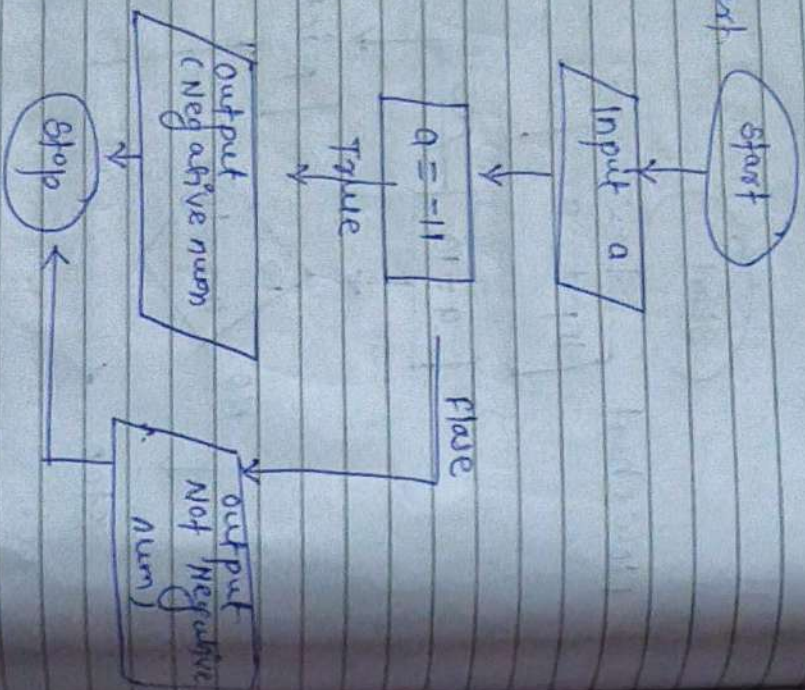 Start
Input a
a = -11
True
Flase
output
(Negative num
output
Not Negative
num)
Stop